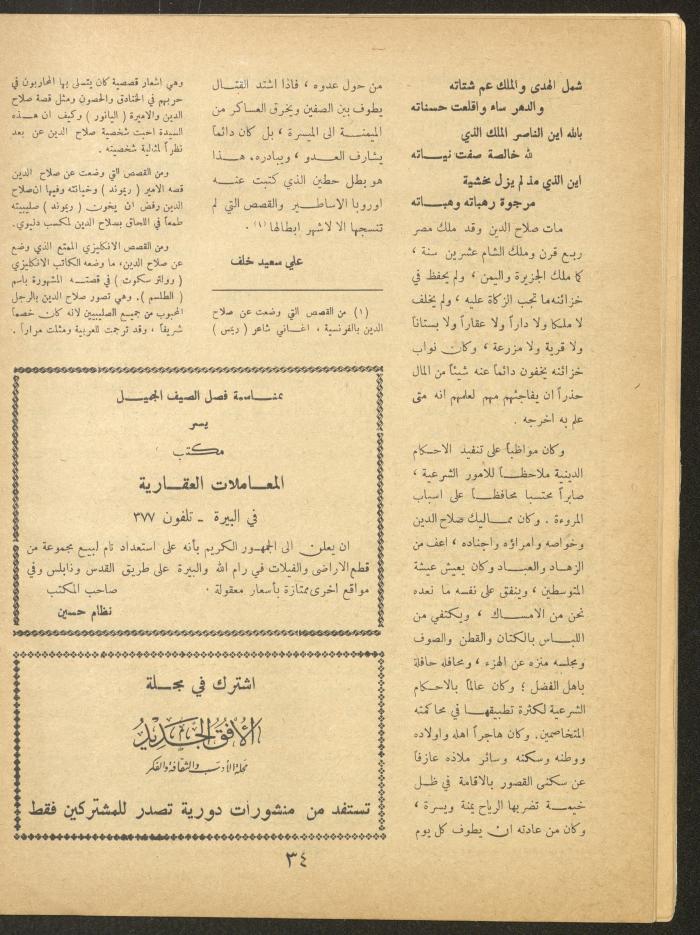 شمل الهدى والملك عم شتاته
والدهر ساء واقلعت حسناته
بالله اين الناصر الملك الذي
لله خالصة صفت نياته
اين الذي مذ لم يزل مخشية
مرجوة رهباته وهباته
مات صلاح الدين وقد ملك مصر
ربع قرن وملك الشام عشرين سنة ،
كما ملك الجزيرة واليمن ، ولم يحفظ في
خزائنه ما تجب الزكاة عليه ، ولم يخلف
لا ملكا ولا داراً ولا عقاراً ولا بستاناً
ولا قرية ولا مزرعة ، وكان نواب
خزائنه يخفون دائماً عنه شيئاً من المال
حذراً ان يفاجئهم مهم لعلمهم انه متى
علم به اخرجه .
وكان مواظباً على تنفيذ الاحكام
الدينية ملاحظاً للأمور الشرعية ،
صابراً محتسبا محافظاً على اسباب
المروءة . وكان مماليك صلاح الدين
وخواصه وامراؤه واجناده ، اعف من
الزهاد والعباد وكان يعيش عيشة
المتوسطين ، وينفق على نفسه ما نعده
نحن من الامساك ، ويكتفي من
اللباس بالكتان والقطن والصوف
ومجلسه منزه عن الهزء ، ومحافله حافلة
باهل الفضل ؛ وكان عالماً بالاحكام
الشرعية لكثرة تطبيقها في محاكمته
المتخاصمين. وكان هاجراً اهله واولاده
ووطنه وسكنه وسائر ملاذه عازفاً
عن سكنى القصور بالاقامة في ظل
خيمة تضربها الرياح يمنة ويسرة ،
وكان من عادته ان يطوف كل يوم
من حول عدوه ، فاذا اشتد القتال
يطوف بين الصفين ويخرق العساكر من
الميمنة الى الميسرة ، بل كان دائماً
يشارف العدو ، ويبادره. هذا
هو بطل حطين الذي كتبت عنه
اوروبا الاساطير والقصص التي لم
تنسجها الا لاشهر ابطالها (١) .
علي سعيد خلف
(١) من القصص التي وضعت عن صلاح
الدين بالفرنسية ، اغاني شاعر ( ريمس )
وهي اشعار قصصية كان يتسلى بها المحاربون في
حربهم في الخنادق والحصون ومثل قصة صلاح
الدين والاميرة ( اليانور ) وكيف ان هذه
السيدة احبت شخصية صلاح الدين عن بعد
نظراً لمثالية شخصيته .
ومن القصص التي وضعت عن صلاح الدين
قصه الامير ( ريموند ) وخيانته وفيها ان صلاح
الدين رفض ان يخون ( ريموند ) صليبيته
طمعاً في اللحاق بسلاح الدين لمكسب دنيوي.
ومن القصص الانكليزي الممتع الذي وضع
عن صلاح الدين، ما وضعه الكاتب الانكليزي
( وولتر سكوت ) في قصته المشهورة باسم
( الطلسم ). وهي تصور صلاح الدين بالرجل
المحبوب من جميع الصليبيين لانه كان خصماً
شريفاً ، وقد ترجمت للعربية ومثلت مراراً .
بمناسبة فصل الصيف الجميل
يسر
مكتب
المعاملات العقارية
في البيرة - تلفون ٣٧٧
ان يعلن الى الجمهور الكريم بأنه على استعداد تام لبيع مجموعة من
قطع الاراضي والفيلات في رام الله والبيرة على طريق القدس ونابلس وفي
مواقع اخرى ممتازة بأسعار معقولة . صاحب المكتب
نظام حسين
اشترك في مجلة
الأفق الجديد
مجلة الأدب والثقافة والفكر
تستفد من منشورات دورية تصدر للمشتركين فقط
٣٤